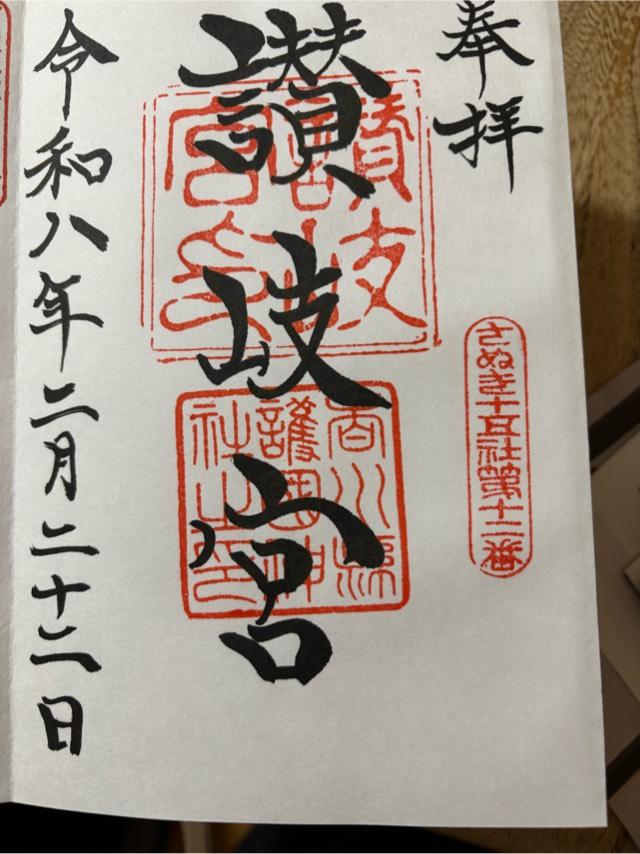 奉拝
さぬき十五社第十二番
讃岐宮
讃岐宮印
香川縣護國神社之印
令和八年二月二十二日